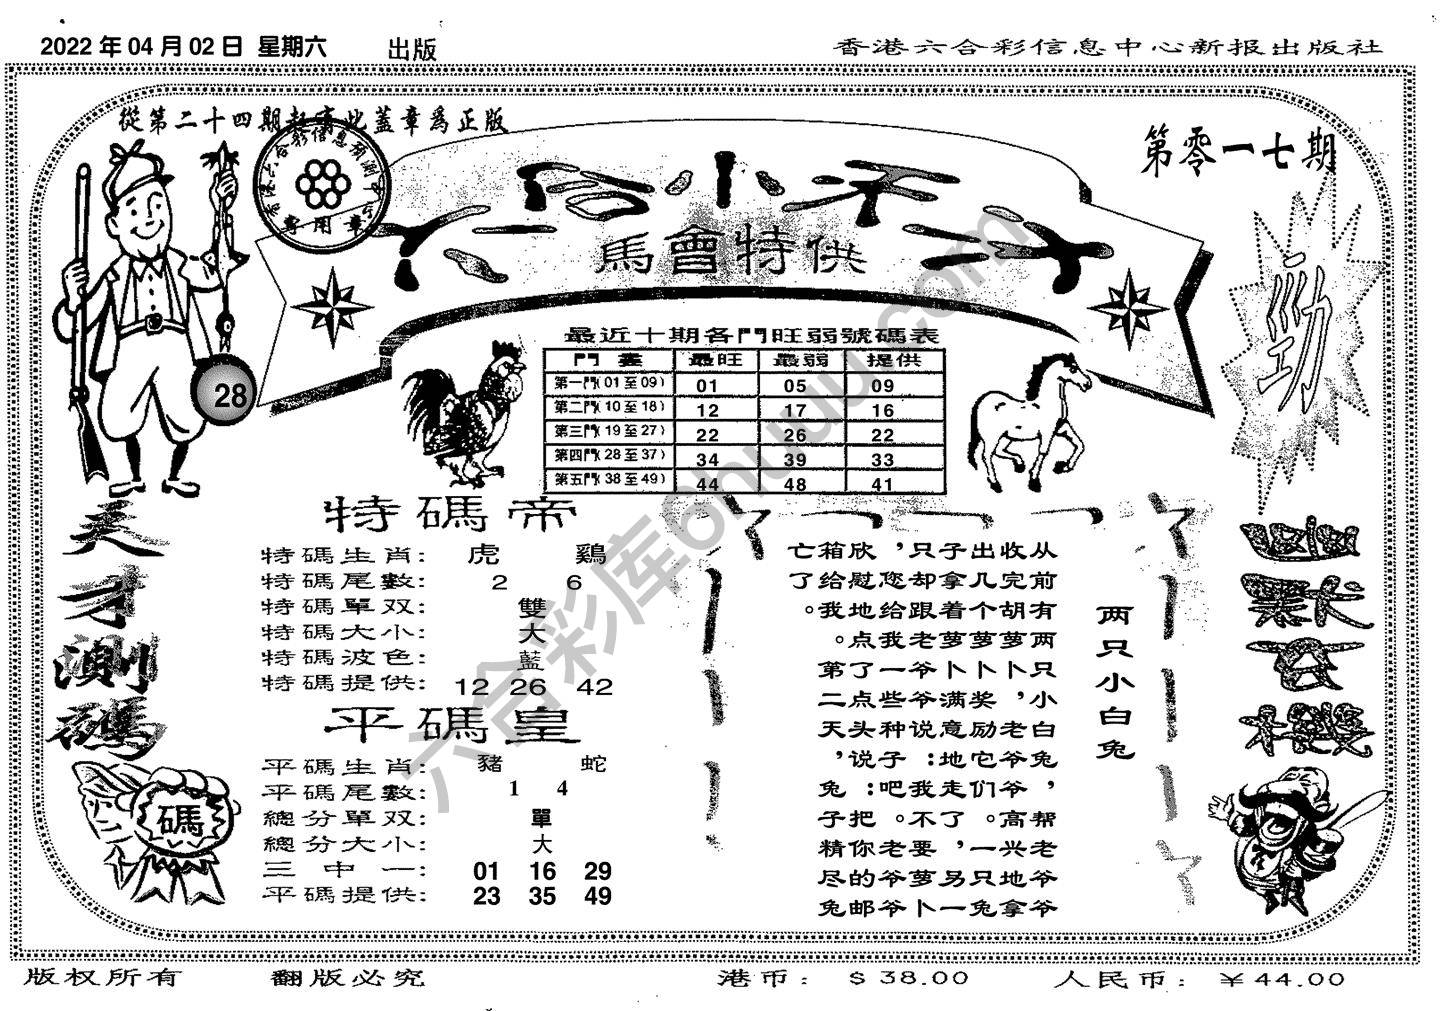 2022 年 04 月 02 日 星期六 出版
香港六合彩信息中心新报出版社
從第二十四期起有此蓋章為正版
第零一七期
馬會特供
勁
28
最近十期各門旺弱號碼表
門 最旺 最弱 提供
第一門(01至09) 01 05 09
第二門(10至18) 12 17 16
第三門(19至27) 22 26 22
第四門(28至37) 34 39 33
第五門(38至49) 44 48 41
天才測碼
特碼帝
特碼生肖: 虎 鷄
特碼尾數: 2 6
特碼單双: 雙
特碼大小: 大
特碼波色: 藍
特碼提供: 12 26 42
平碼皇
平碼生肖: 豬 蛇
平碼尾數: 1 4
總分單双: 單
總分大小: 大
三中一: 01 16 29
平碼提供: 23 35 49
碼
两只小白兔
从前有两只小白兔,帮老爷爷拿
收完胡萝卜,老爷爷高兴地
出几个萝卜奖励它们走了,一只兔
子拿着萝卜满意地走了。另一
只却跟老爷爷说:我不要萝卜
,您给我一些种子吧。老爷
欣慰地点了点头说:把你的邮
箱给我。第二天,兔子精尽兔
亡了。
版权所有 翻版必究 港币: $ 38.00 人民币: ¥ 44.00
六合彩库6huuu.com